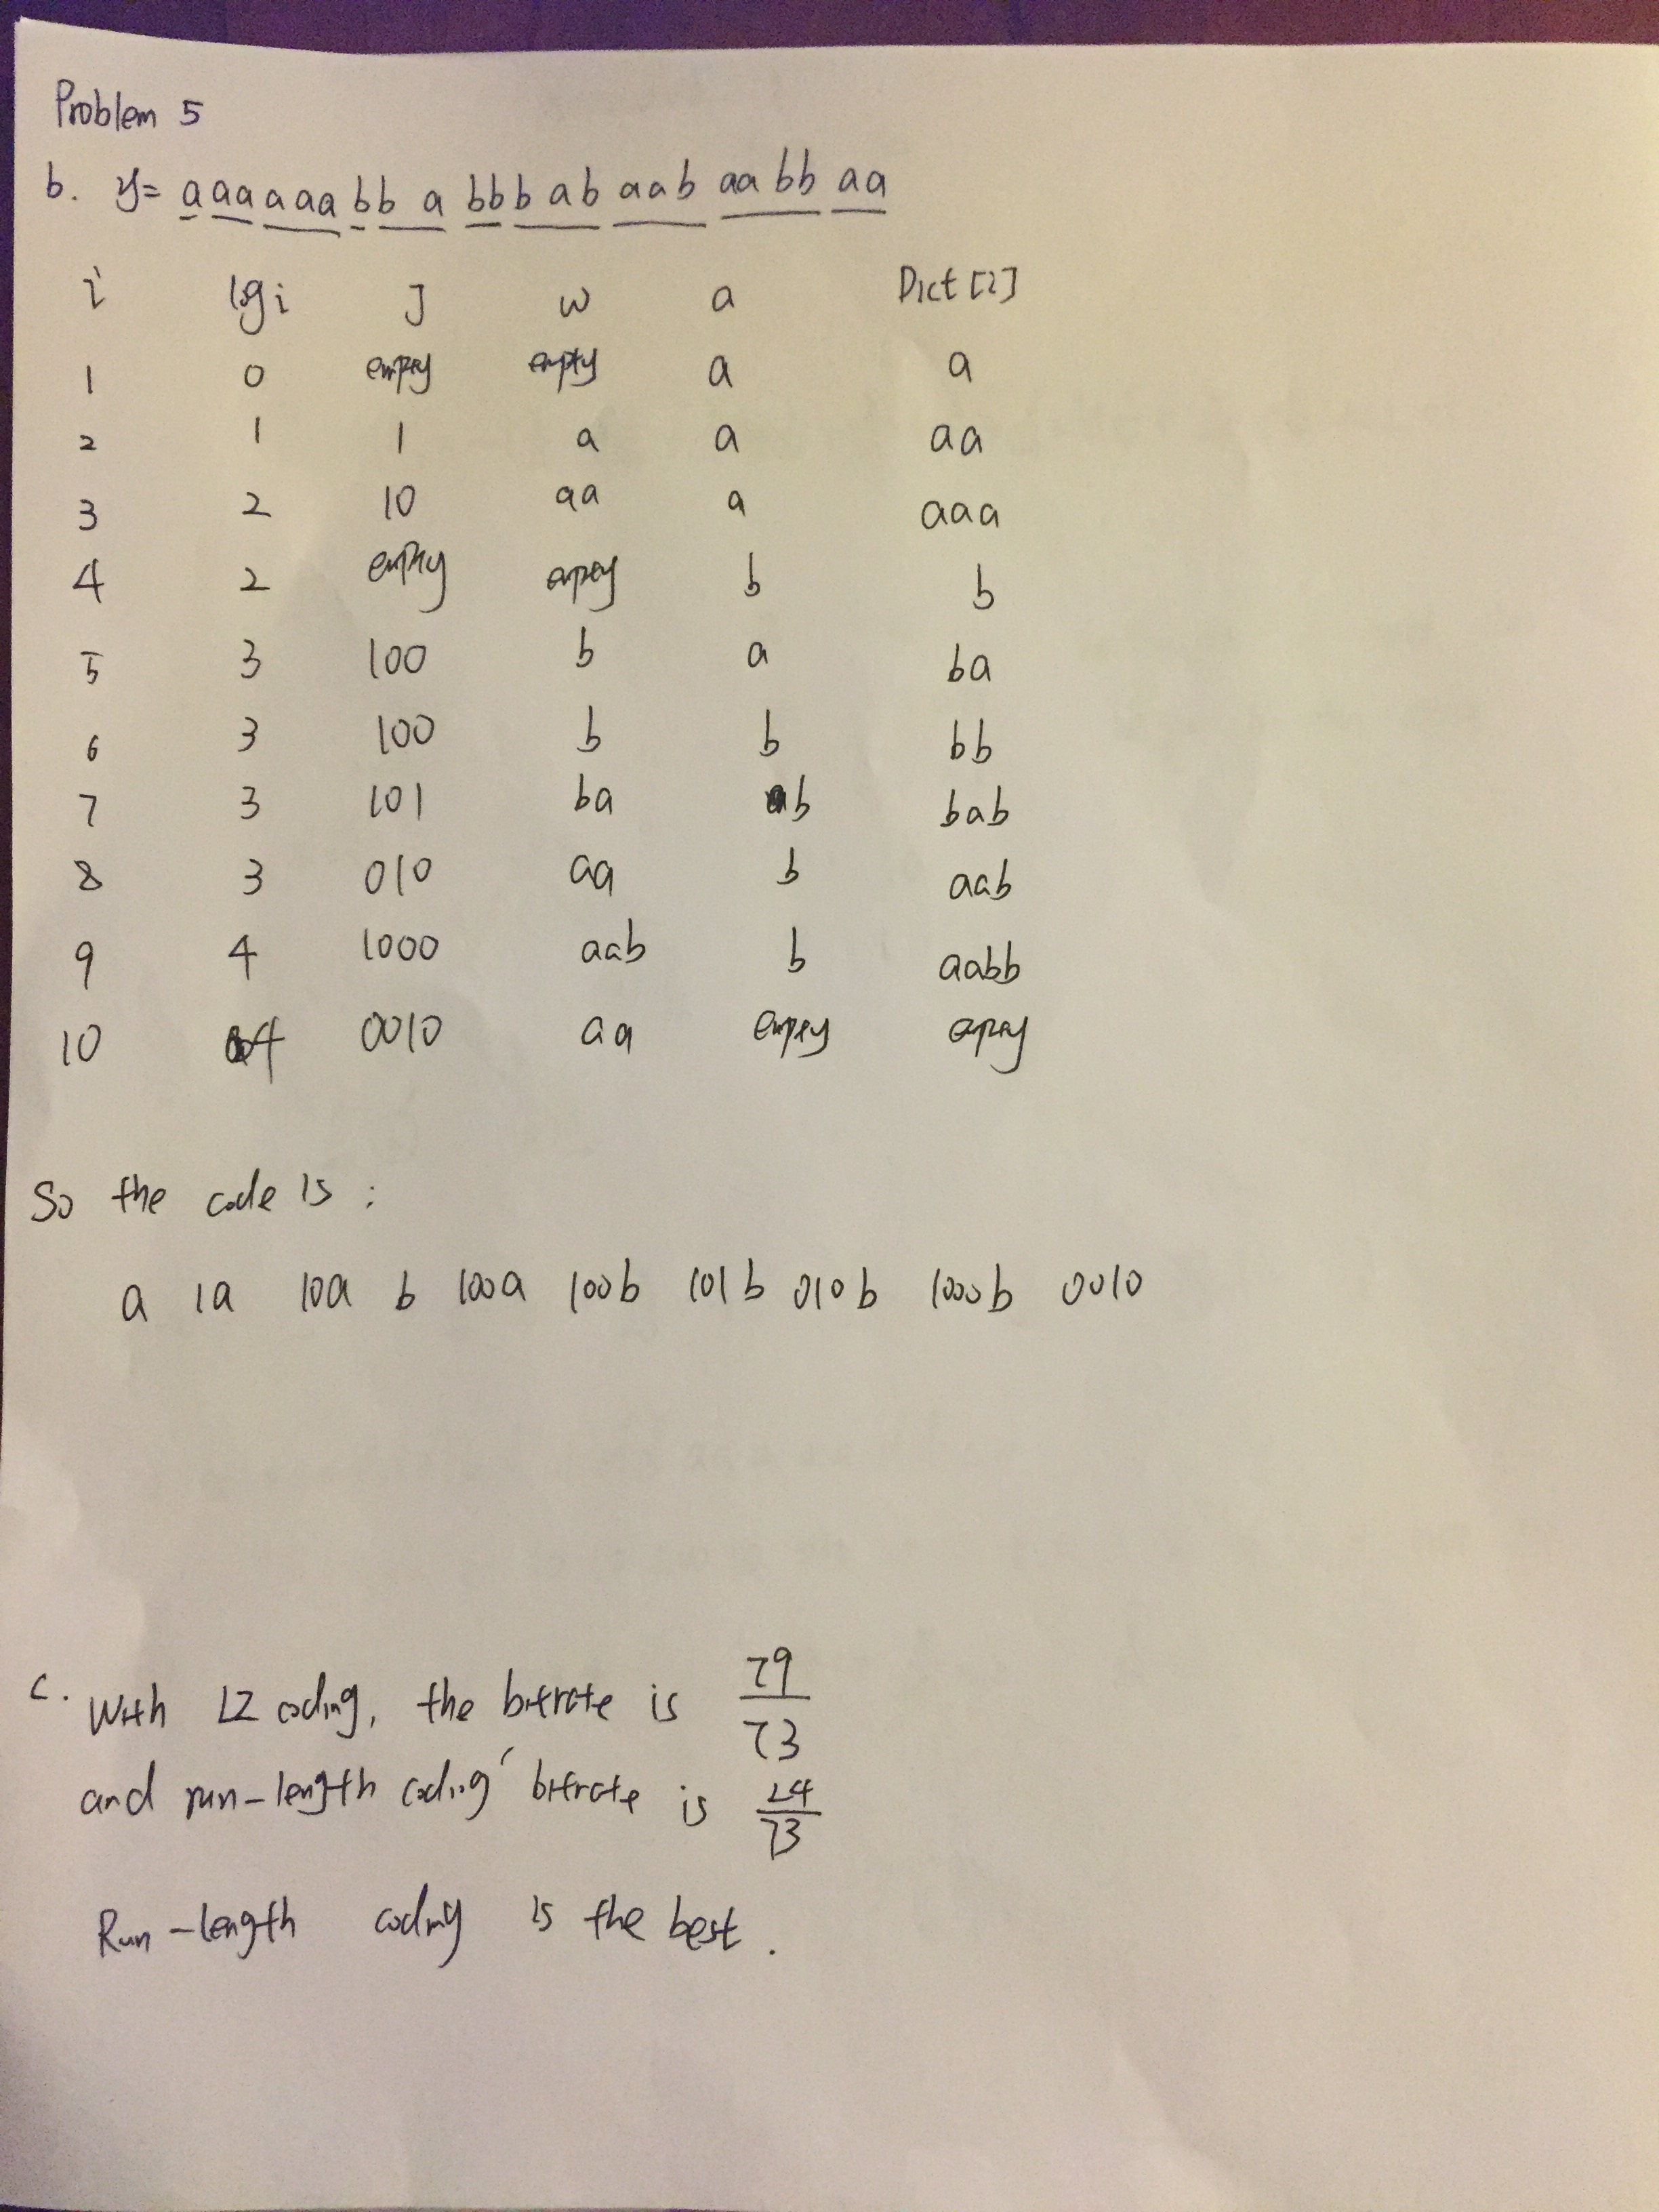 Problem 5
b. y= a aa aaa b b a bb b ab aab aa bb aa
i lg i J w a Dict [i]
1 0 empty empty a a
2 1 1 a a aa
3 2 10 aa a aaa
4 2 empty empty b b
5 3 100 b a ba
6 3 100 b b bb
7 3 101 ba b bab
8 3 010 aa b aab
9 4 1000 aab b aabb
10 4 0010 aa empty empty
So the code is :
a 1a 10a b 100a 100b 101b 010b 1000b 0010
c. With LZ coding, the bitrate is 79/73
and run-length coding' bitrate is 24/73
Run-length coding is the best.